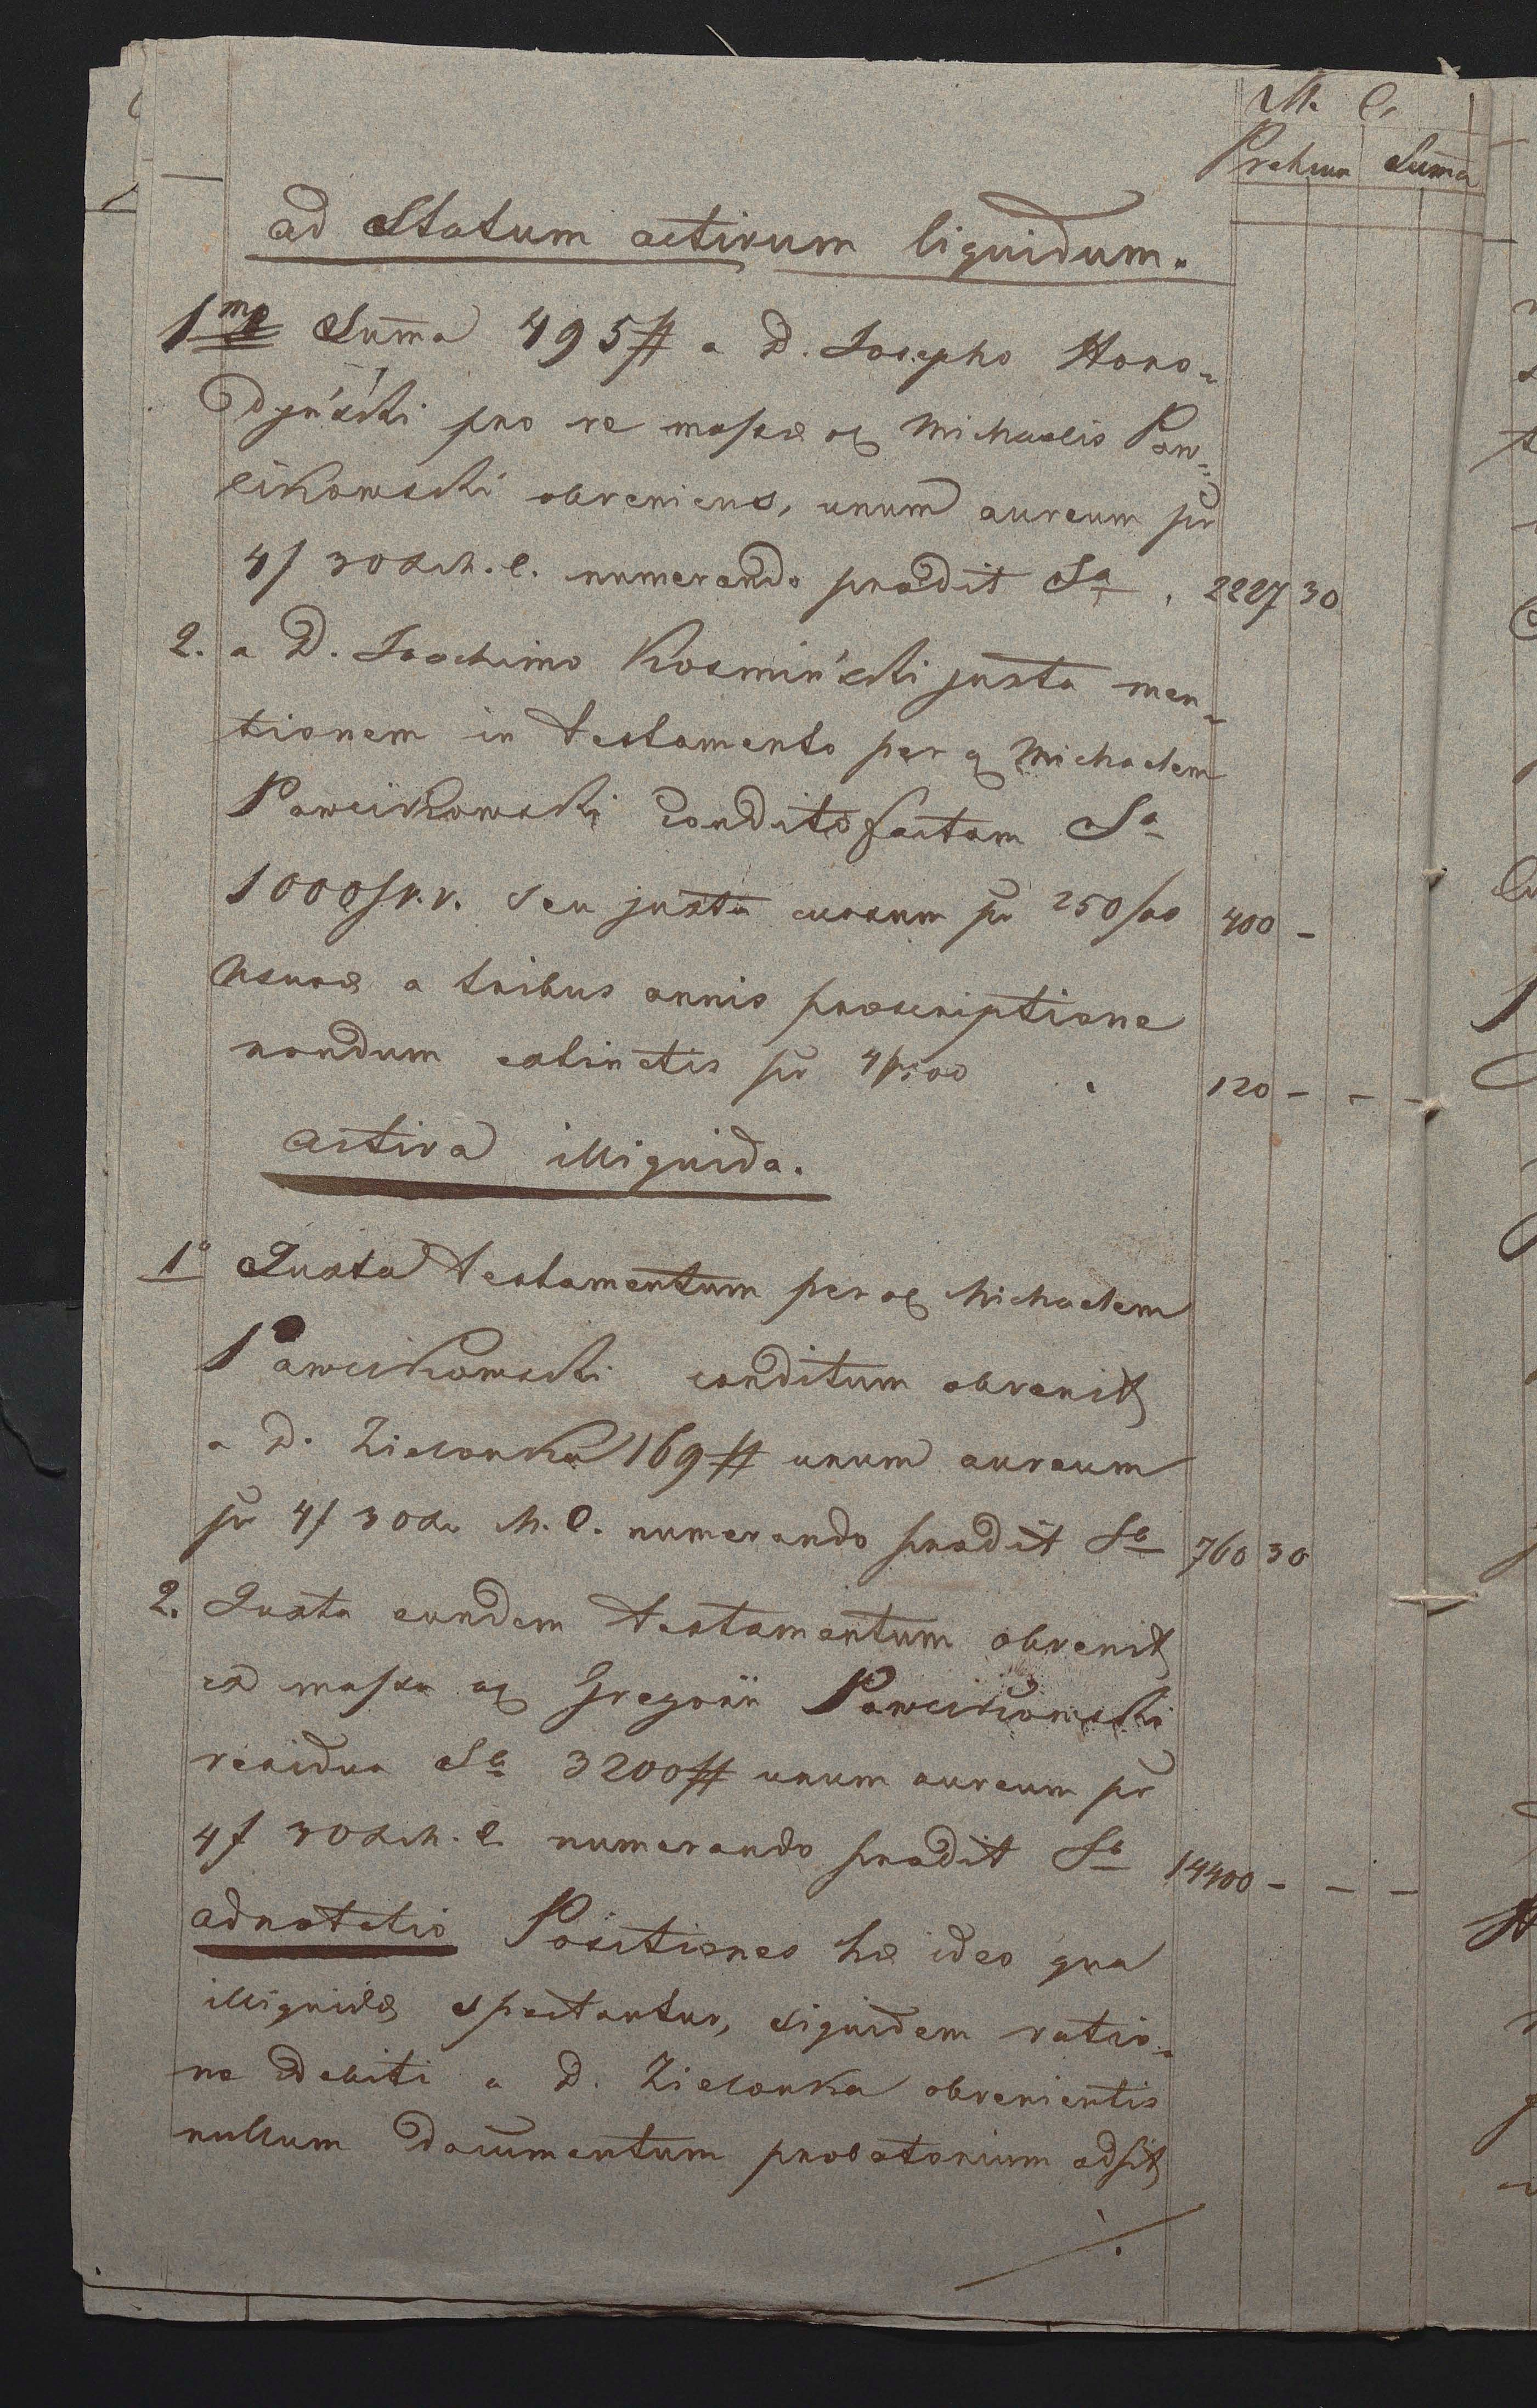 M. C.
Pretium Summa
ad Statum activum liquidum.
1mo Summa 495# a D. Josepho Horo-
dyński pro re massæ olim Michaelis Paw-
likowski obveniens, unum aureum pr
4f 30xr M. C. numerando prodit Sa. 2227 30
2. a D. Joachimo Kosmiński juxta men-
tionem in testamento per olim Michaelem
Pawlikowski condito factam Sa
1000f V. V. seu juxta cursum pr 250/00 400 -
Usuræ a tribus annis præscriptione
nondum extinctis pr 4pr 00 . 120 - - -
activa illiquida.
1o Juxta testamentum per olim Michaelem
Pawlikowski conditum obvenit
a D. Zielonka 169# unum aureum
pr 4f 30xr M. C. numerando prodit Sa 760 30
2. Juxta eundem testamentum obvenit
ex massa olim Gregorii Pawlikowski
residua Sa 3200# unum aureum pr
4f 30xr M. C. numerando prodit Sa 14400 - - -
adnotatio Positiones hæ ideo qua
illiquidæ spectantur, siquidem ratio-
ne debiti a D. Zielonka obvenientis
nullum documentum probatorium adsit
./.